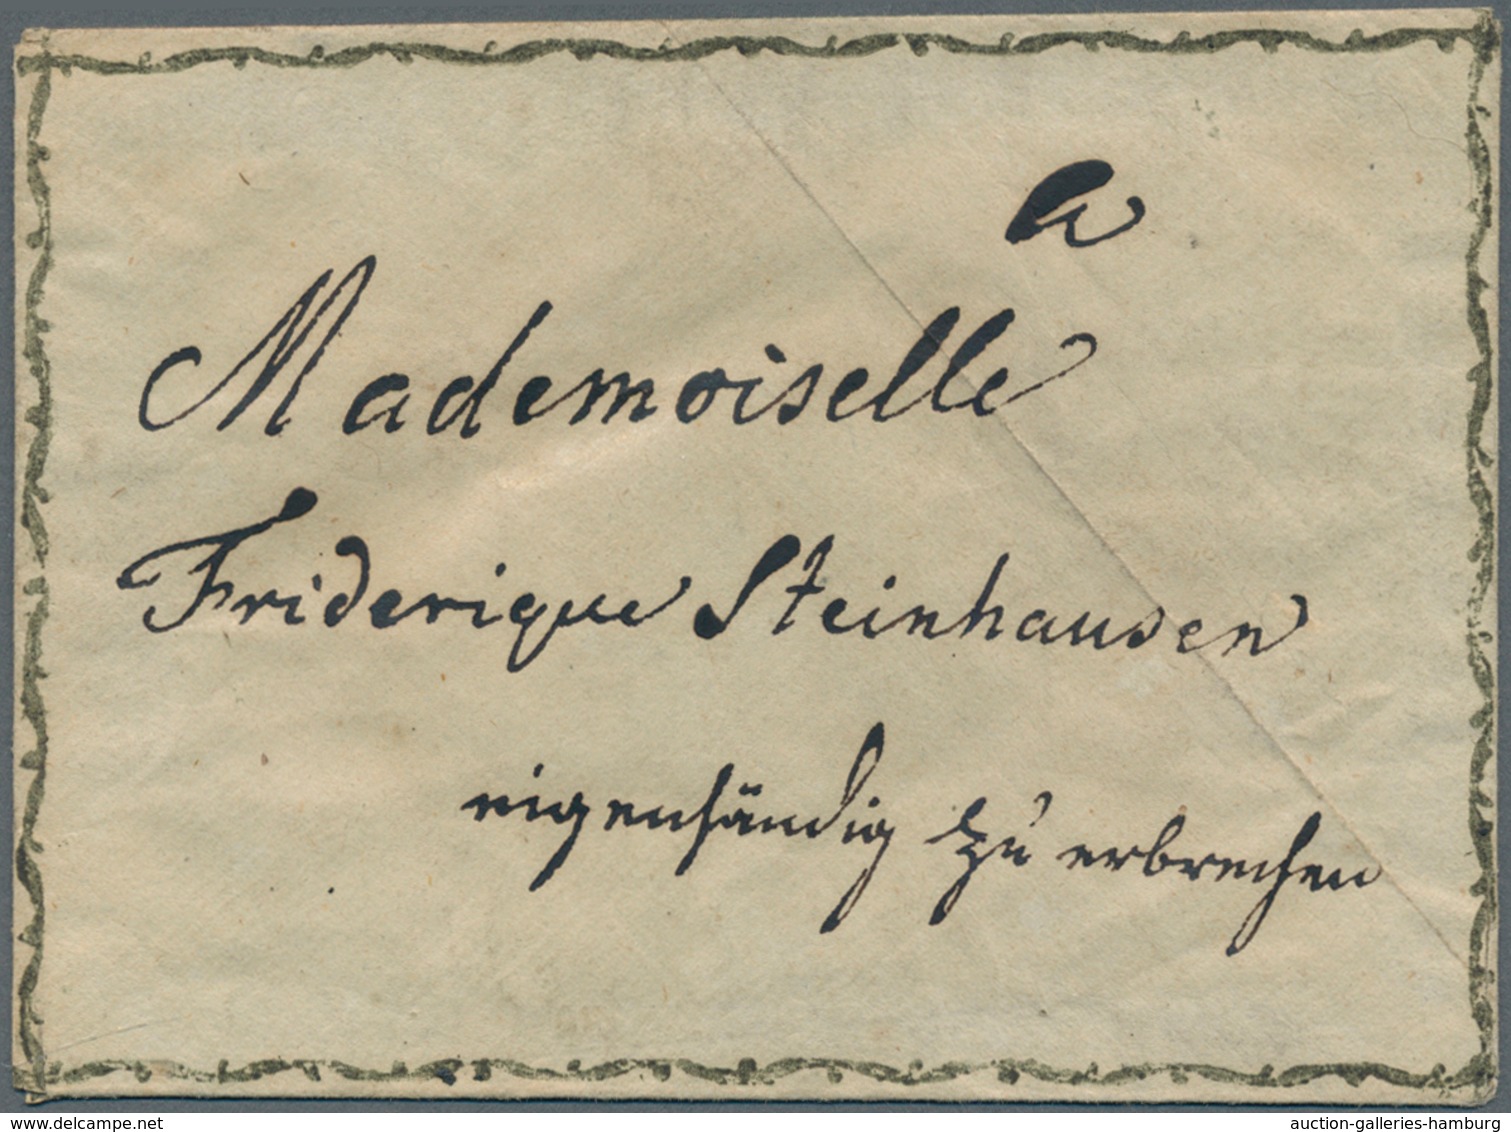 a
Mademoiselle
Friderique Steinhausen
eigenhändig zu erbrechen
www.delcampe.net
auction-galleries-hamburg